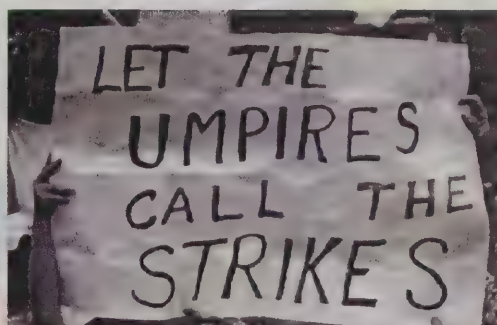 LET THE
UMPIRES
CALL THE
STRIKES